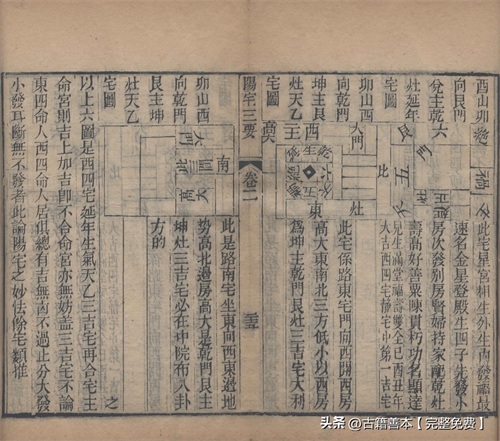 酉山卯
向艮門
兌主乾六
灶延年
宅圖
門
五
此宅星宮相生外生內發福最
速名金星登殿生四子先發小
房次發別房賢婦持家配乾灶
壽高好善粟陳貫朽功名顯達
見生滿堂福壽雙全已酉丑年
大吉西四宅靜宅中第一吉宅
卯山酉
向乾門
坤主艮
灶天乙
宅圖
大門
西
東
灶
此宅係路東宅門向西開西房
高大東南北三方低小以西房
為坤主乾門艮灶三吉宅大利
陽宅三要
卷二
卯山酉
向乾門
艮主坤
灶天乙
宅圖
南
高大
此是路南宅坐東向西東邊地
勢高北邊房高大是乾門艮主
坤灶三吉宅必在中院布八卦
方的
以上六圖是西四宅延年生氣天乙三吉宅再合宅主
命宮則吉上加吉卽不合命宮亦無妨蓋三吉宅不論
東四命人西四命人居俱總有吉無凶不過止分大發
小發耳斷無不發者此論陽宅之妙法餘宅類推
头条 @古籍善本【完整免费】